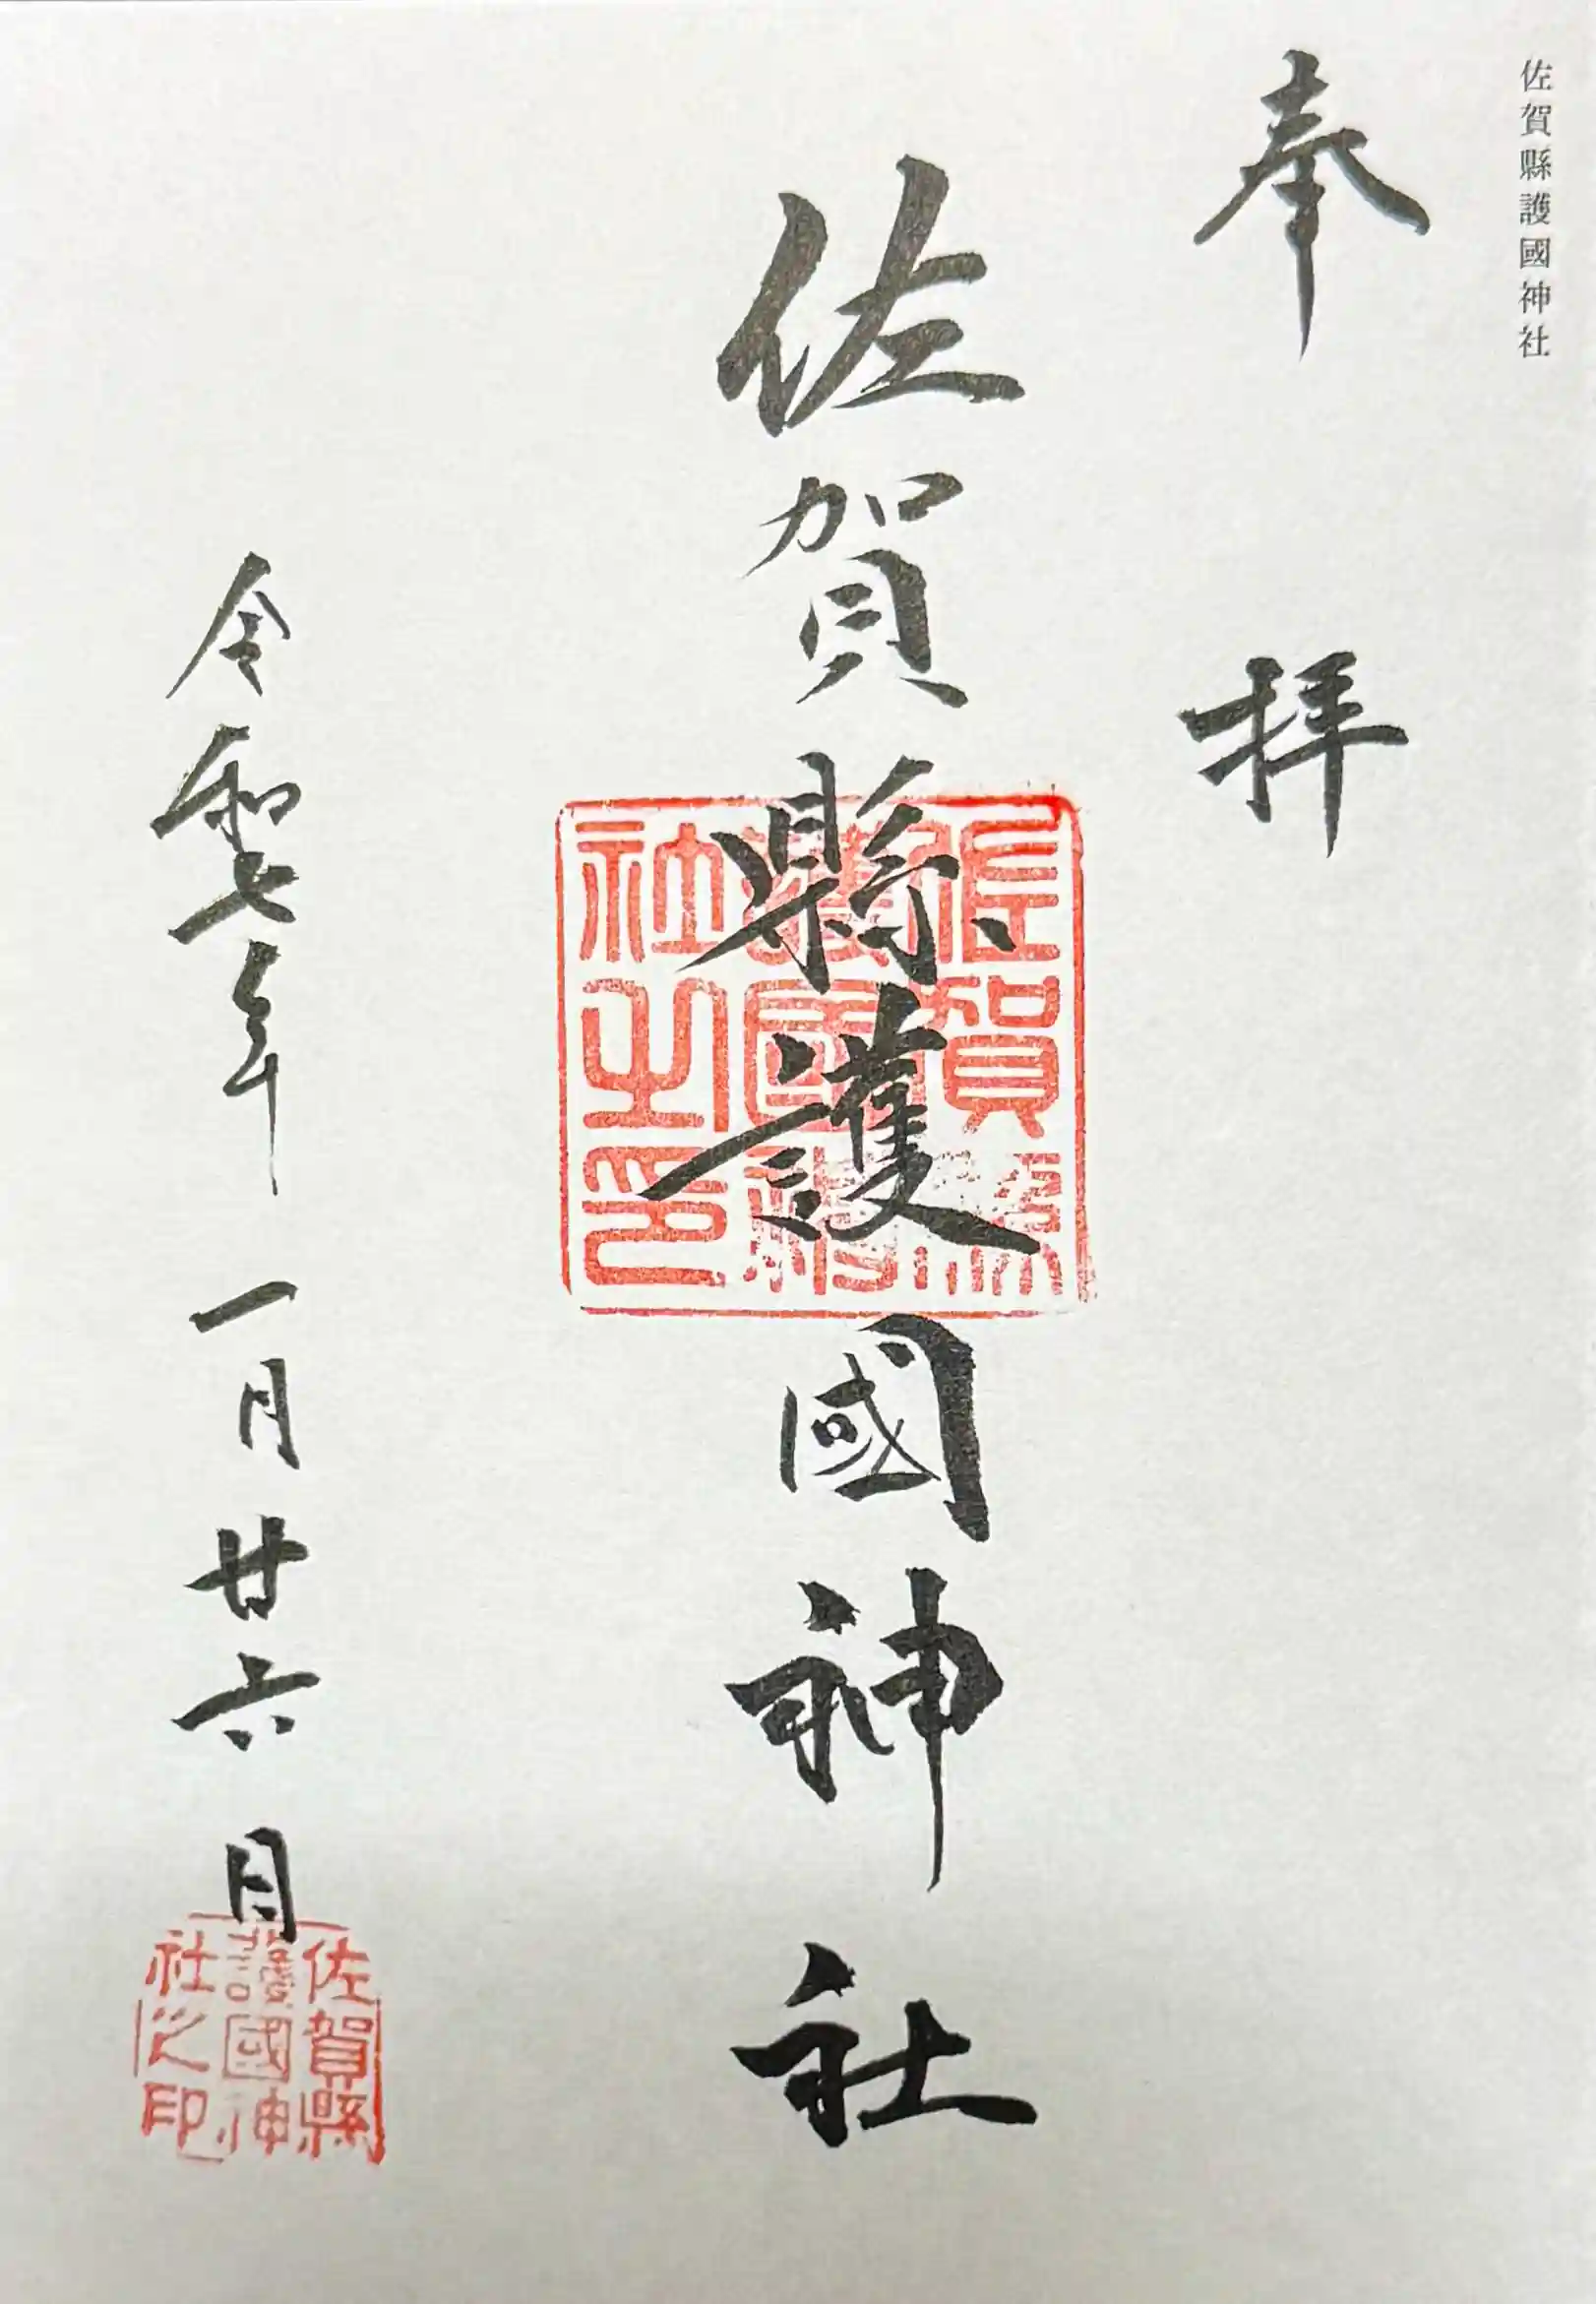 佐賀縣護國神社
奉拝
佐賀縣護國神社
佐賀縣
護國神
社之印
令和七年一月廿六日
佐賀縣
護國神
社之印